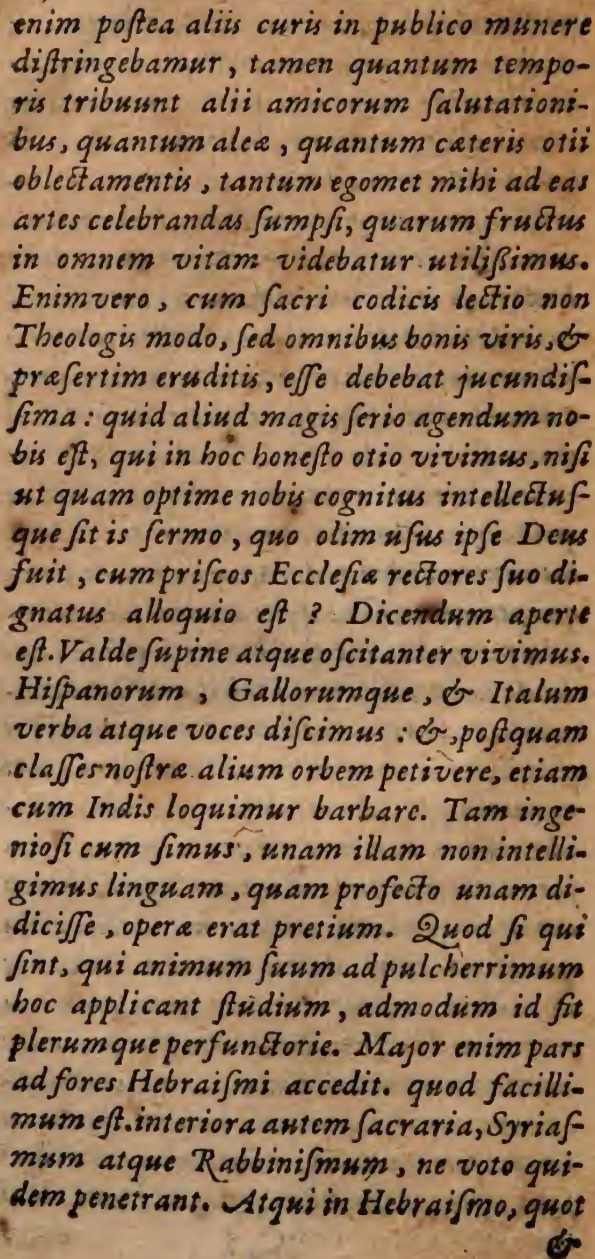 enim poſtea aliis curis in publico munere
diſtringebamur, tamen quantum tempo-
ris tribuunt alii amicorum ſalutationi-
bus, quantum aleæ, quantum cæteris otii
oblectamentis, tantum egomet mihi ad eas
artes celebrandas ſumpſi, quarum fructus
in omnem vitam videbatur utilißimus.
Enimvero, cum ſacri codicis lectio non
Theologis modo, ſed omnibus bonis viris, &
præſertim eruditis, eſſe debebat jucundiſ-
ſima: quid aliud magis ſerio agendum no-
bis eſt, qui in hoc honeſto otio vivimus, niſi
ut quam optime nobis cognitus intellectuſ-
que ſit is ſermo, quo olim uſus ipſe Deus
fuit, cum priſcos Eccleſiæ rectores ſuo di-
gnatus alloquio eſt? Dicendum aperte
eſt. Valde ſupine atque oſcitanter vivimus.
Hiſpanorum, Gallorumque, & Italum
verba atque voces diſcimus: &, poſtquam
claſſes noſtræ alium orbem petivere, etiam
cum Indis loquimur barbare. Tam inge-
nioſi cum ſimus, unam illam non intelli-
gimus linguam, quam profecto unam di-
diciſſe, operæ erat pretium. Quod ſi qui
ſint, qui animum ſuum ad pulcherrimum
hoc applicant ſtudium, admodum id fit
plerumque perfunctorie. Major enim pars
ad fores Hebraiſmi accedit. quod facilli-
mum eſt. interiora autem ſacraria, Syriaſ-
mum atque Rabbiniſmum, ne voto qui-
dem penetrant. Atqui in Hebraiſmo, quot
&